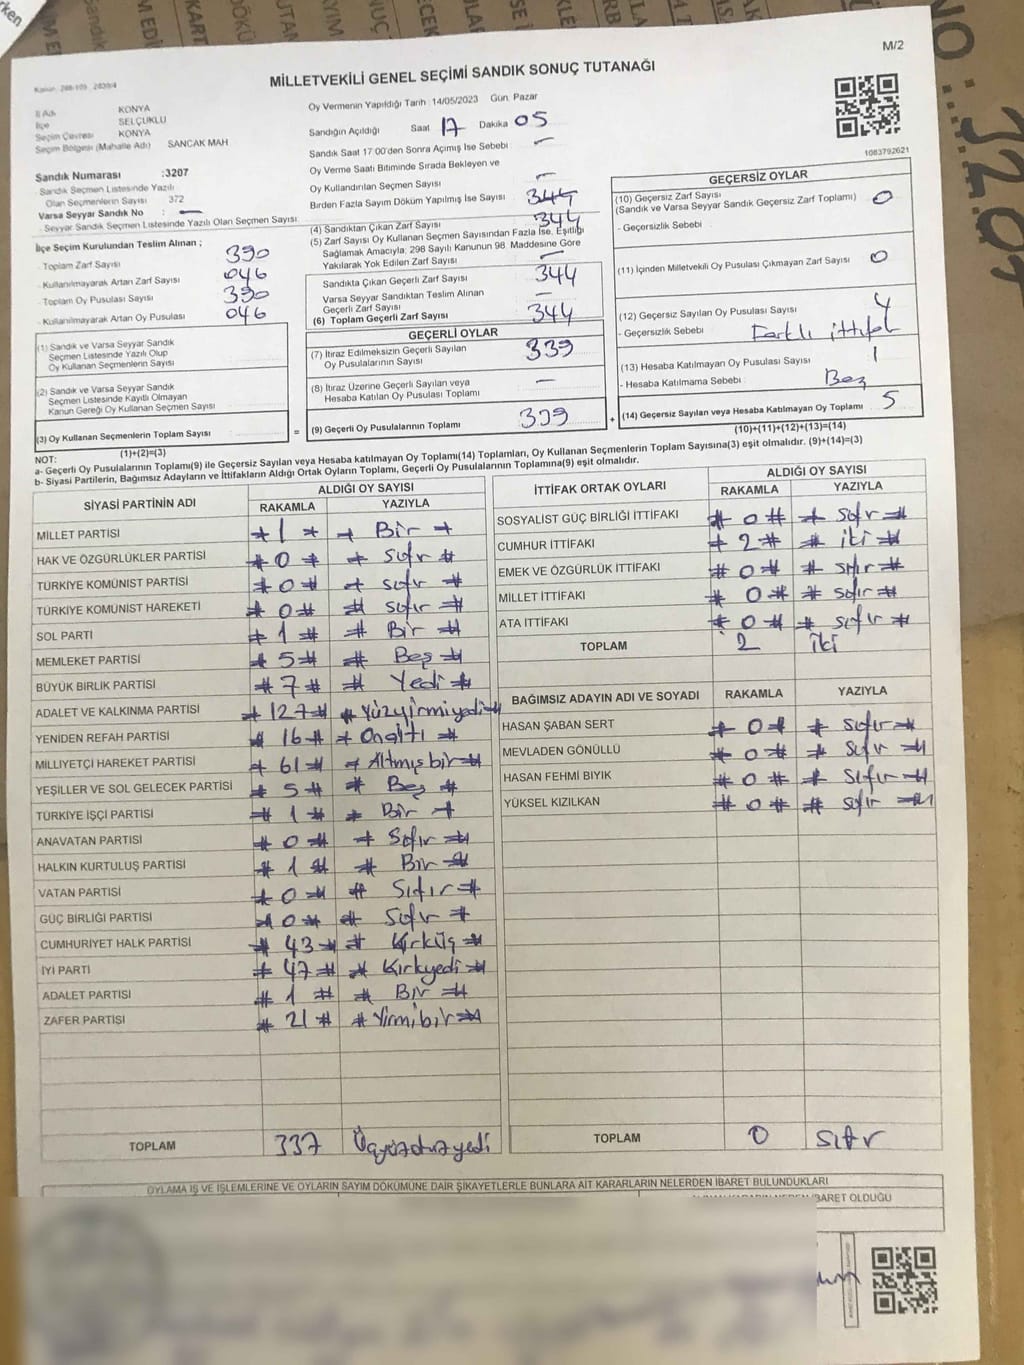 M/2
MİLLETVEKİLİ GENEL SEÇİMİ SANDIK SONUÇ TUTANAĞI
İl Adı KONYA
İlçe SELÇUKLU
Seçim Çevresi KONYA
Seçim Bölgesi (Mahalle Adı) SANCAK MAH
Sandık Numarası :3207
- Sandık Seçmen Listesinde Yazılı
Olan Seçmenlerin Sayısı 372
Varsa Seyyar Sandık No : —
- Seyyar Sandık Seçmen Listesinde Yazılı Olan Seçmen Sayısı
İlçe Seçim Kurulundan Teslim Alınan ;
- Toplam Zarf Sayısı 390
- Kullanılmayarak Artan Zarf Sayısı 046
- Toplam Oy Pusulası Sayısı 390
- Kullanılmayarak Artan Oy Pusulası 046
(1) Sandık ve Varsa Seyyar Sandık
Seçmen Listesinde Yazılı Olup
Oy Kullanan Seçmenlerin Sayısı
(2) Sandık ve Varsa Seyyar Sandık
Seçmen Listesinde Kayıtlı Olmayan
Kanun Gereği Oy Kullanan Seçmen Sayısı
(3) Oy Kullanan Seçmenlerin Toplam Sayısı
(1)+(2)=(3)
Oy Vermenin Yapıldığı Tarih :14/05/2023 Gün: Pazar
Sandığın Açıldığı Saat 17 Dakika 05
Sandık Saat 17:00'den Sonra Açılmış İse Sebebi —
Oy Verme Saati Bitiminde Sırada Bekleyen ve
Oy Kullandırılan Seçmen Sayısı —
Birden Fazla Sayım Döküm Yapılmış İse Sayısı 344
(4) Sandıktan Çıkan Zarf Sayısı 344
(5) Zarf Sayısı Oy Kullanan Seçmen Sayısından Fazla İse, Eşitliği
Sağlamak Amacıyla; 298 Sayılı Kanunun 98. Maddesine Göre
Yakılarak Yok Edilen Zarf Sayısı —
Sandıkta Çıkan Geçerli Zarf Sayısı 344
Varsa Seyyar Sandıktan Teslim Alınan
Geçerli Zarf Sayısı —
(6) Toplam Geçerli Zarf Sayısı 344
GEÇERLİ OYLAR
(7) İtiraz Edilmeksizin Geçerli Sayılan
Oy Pusulalarının Sayısı 339
(8) İtiraz Üzerine Geçerli Sayılan veya
Hesaba Katılan Oy Pusulası Toplamı —
= (9) Geçerli Oy Pusulalarının Toplamı 339 +
1083792621
GEÇERSİZ OYLAR
(10) Geçersiz Zarf Sayısı 0
(Sandık ve Varsa Seyyar Sandık Geçersiz Zarf Toplamı)
- Geçersizlik Sebebi
(11) İçinden Milletvekili Oy Pusulası Çıkmayan Zarf Sayısı 0
(12) Geçersiz Sayılan Oy Pusulası Sayısı 4
- Geçersizlik Sebebi : Farklı ittifak
(13) Hesaba Katılmayan Oy Pusulası Sayısı 1
- Hesaba Katılmama Sebebi : Boş
(14) Geçersiz Sayılan veya Hesaba Katılmayan Oy Toplamı 5
(10)+(11)+(12)+(13)=(14)
NOT:
a- Geçerli Oy Pusulalarının Toplamı(9) ile Geçersiz Sayılan veya Hesaba Katılmayan Oy Toplamı(14) Toplamları, Oy Kullanan Seçmenlerin Toplam Sayısına(3) eşit olmalıdır. (9)+(14)=(3)
b- Siyasi Partilerin, Bağımsız Adayların ve İttifakların Aldığı Ortak Oyların Toplamı, Geçerli Oy Pusulalarının Toplamına(9) eşit olmalıdır.
SİYASİ PARTİNİN ADI ALDIĞI OY SAYISI
RAKAMLA YAZIYLA
MİLLET PARTİSİ 1 Bir
HAK VE ÖZGÜRLÜKLER PARTİSİ 0 sıfır
TÜRKİYE KOMÜNİST PARTİSİ 0 sıfır
TÜRKİYE KOMÜNİST HAREKETİ 0 sıfır
SOL PARTİ 1 Bir
MEMLEKET PARTİSİ 5 Beş
BÜYÜK BİRLİK PARTİSİ 7 Yedi
ADALET VE KALKINMA PARTİSİ 127 Yüzyirmiyedi
YENİDEN REFAH PARTİSİ 16 Onaltı
MİLLİYETÇİ HAREKET PARTİSİ 61 Altmışbir
YEŞİLLER VE SOL GELECEK PARTİSİ 5 Beş
TÜRKİYE İŞÇİ PARTİSİ 1 Bir
ANAVATAN PARTİSİ 0 Sıfır
HALKIN KURTULUŞ PARTİSİ 1 Bir
VATAN PARTİSİ 0 Sıfır
GÜÇ BİRLİĞİ PARTİSİ 0 Sıfır
CUMHURİYET HALK PARTİSİ 43 Kırküç
İYİ PARTİ 47 Kırkyedi
ADALET PARTİSİ 1 Bir
ZAFER PARTİSİ 21 Yirmibir
TOPLAM 337 Üçyüzotuzyedi
İTTİFAK ORTAK OYLARI ALDIĞI OY SAYISI
RAKAMLA YAZIYLA
SOSYALİST GÜÇ BİRLİĞİ İTTİFAKI 0 sıfır
CUMHUR İTTİFAKI 2 iki
EMEK VE ÖZGÜRLÜK İTTİFAKI 0 sıfır
MİLLET İTTİFAKI 0 sıfır
ATA İTTİFAKI 0 sıfır
TOPLAM 2 iki
BAĞIMSIZ ADAYIN ADI VE SOYADI RAKAMLA YAZIYLA
HASAN ŞABAN SERT 0 sıfır
MEVLADEN GÖNÜLLÜ 0 sıfır
HASAN FEHMİ BIYIK 0 sıfır
YÜKSEL KIZILKAN 0 sıfır
TOPLAM 0 sıfır
OYLAMA İŞ VE İŞLEMLERİNE VE OYLARIN SAYIM DÖKÜMÜNE DAİR ŞİKAYETLERLE BUNLARA AİT KARARLARIN NELERDEN İBARET BULUNDUKLARI
İBARET OLDUĞU
NO : 3207